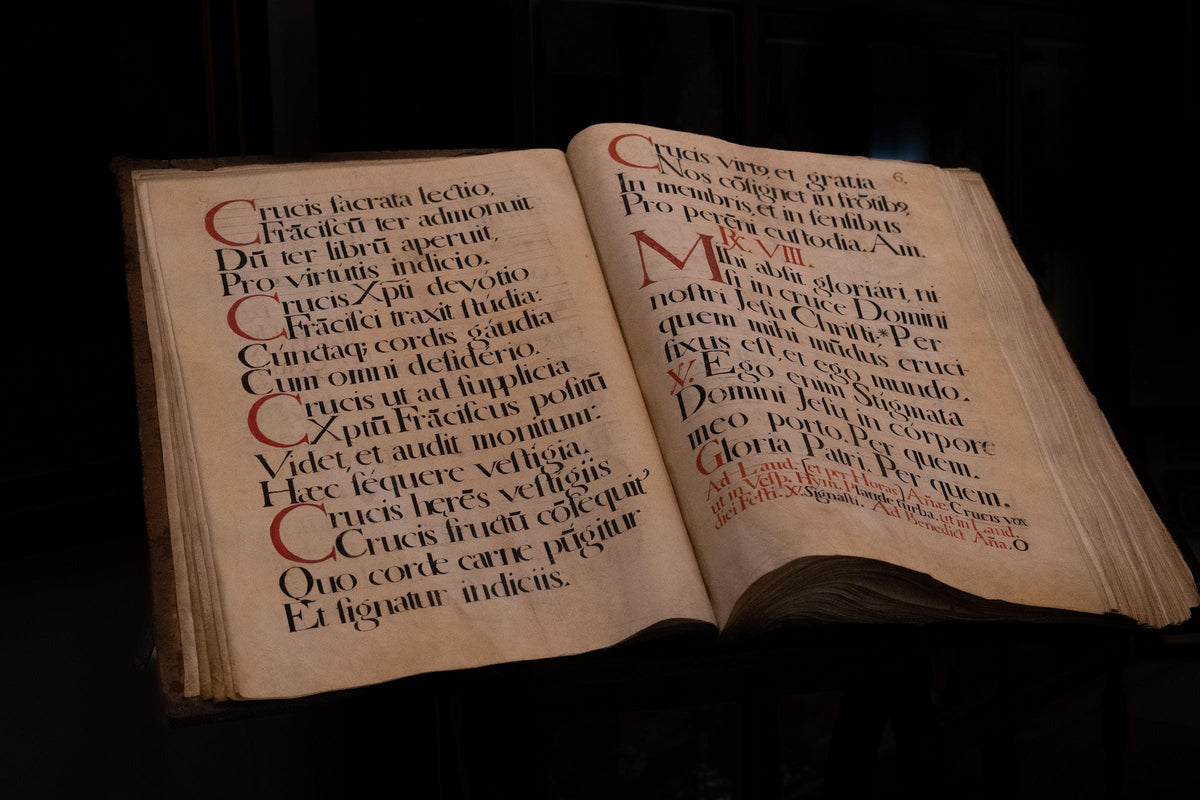 Crucis ſacrata lectio,
Frāciſcū ter admonuit
Dū ter librū aperuit,
Pro virtutis indicio.
Crucis Xpti devótio
Frāciſci traxit ſtúdia:
Cúnctaq; cordis gáudia
Cum omni deſidério.
Crucis ut ad ſupplicia
Xptū Frāciſcus poſitū
Videt, et audit monitum:
Hæc ſéquere veſtígia.
Crucis herēs veſtígiis
Crucis fructū cōſequit'
Quo corde carne pūgitur
Et ſignatur indiciis.
6.
Crucis virt9, et gratia
Nos cōſignet in frōtib9,
In membris, et in ſenſibus
Pro perēni cuſtodia. Am.
℞. VIII.
Mihi abſit gloriári, ni
ſi in cruce Domini
noſtri Jeſu Chriſti:* Per
quem mihi mūdus cruci-
fixus eſt, et ego mundo.
℣. Ego enim Stigmata
Domini Jeſu in córpore
meo porto. Per quem.
Gloria Patri. Per quem.
Ad Laud. et per Horas Añæ. Crucis vox
ut in Veſp. Hym. Plaude turba. ut in Laud.
diei Feſti. ℣. Signaſti. Ad Benedict Aña. O